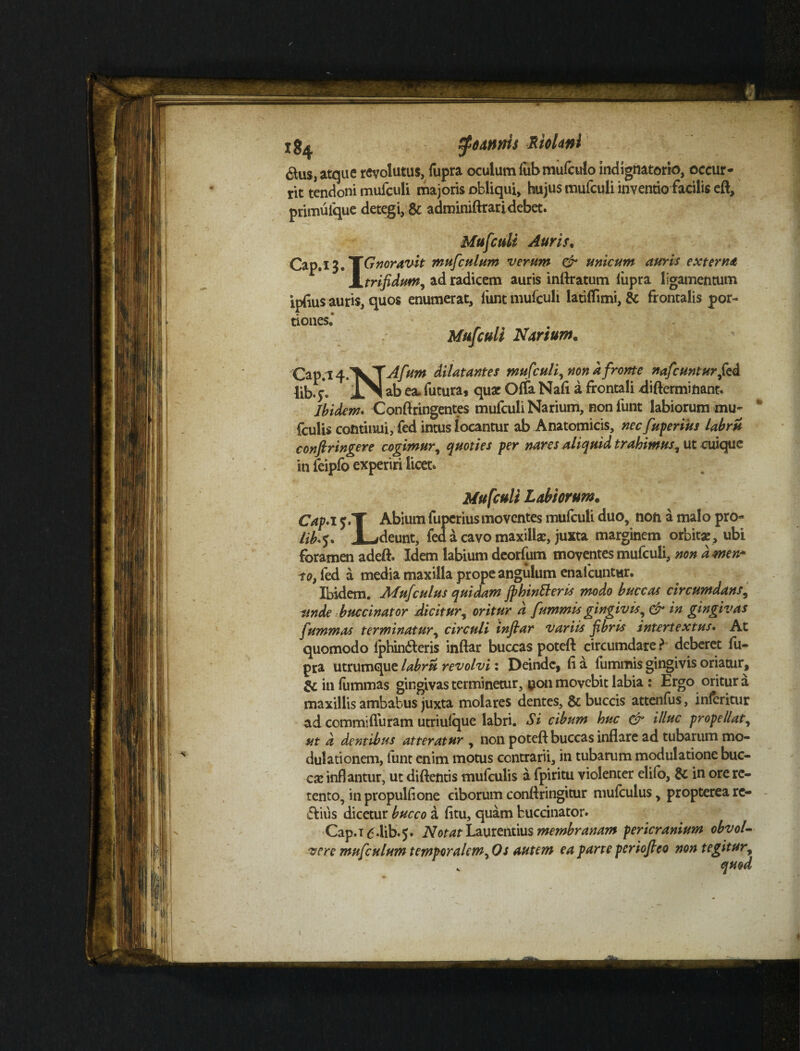 184 Joannis Riolani
ctus, atque revolutus, supra oculum sub musculo indignatorio, occur-
rit tendoni musculi majoris obliqui, hujus musculi inventio facilis est,
primúsque detegi, & administrari debet.
Musculi Auris.
Cap.13. IGnoravit musculum verum & unicum auris externæ
trifidum, ad radicem auris instratum supra ligamentum
ipsius auris, quos enumerat, sunt musculi latissimi, & frontalis por-
tiones.
Musculi Narium.
Cap.14. NAsum dilatantes musculi, non à fronte nascuntur, sed
lib.5. ab ea sutura, quæ Ossa Nasi à frontali disterminant.
Ibidem. Constringentes musculi Narium, non sunt labiorum mu-
sculis continui, sed intus locantur ab Anatomicis, nec superius labrũ
constringere cogimur, quoties per nares aliquid trahimus, ut cuique
in seipso experiri licet.
Musculi Labiorum.
Cap.15. LAbium superius moventes musculi duo, non à malo pro-
lib.5. deunt, sed à cavo maxillæ, juxta marginem orbitæ, ubi
foramen adest. Idem labium deorsum moventes musculi, non à men-
to, sed à media maxilla prope angulum enascuntur.
Ibidem. Musculus quidam sphincteris modo buccas circumdans,
unde buccinator dicitur, oritur à summis gingivis, & in gingivas
summas terminatur, circuli instar variis fibris intertextus. At
quomodo sphincteris instar buccas potest circumdare? deberet su-
pra utrumque labrũ revolvi: Deinde, si à summis gingivis oriatur,
& in summas gingivas terminetur, non movebit labia: Ergo oritur à
maxillis ambabus juxta molares dentes, & buccis attensus, inseritur
ad commissuram utriusque labri. Si cibum huc & illuc propellat,
ut à dentibus atteratur, non potest buccas inflare ad tubarum mo-
dulationem, sunt enim motus contrarii, in tubarum modulatione buc-
cæ inflantur, ut distentis musculis à spiritu violenter eliso, & in ore re-
tento, in propulsione ciborum constringitur musculus, propterea re-
ctiùs dicetur bucco à situ, quàm buccinator.
Cap.16.lib.5. Notat Laurentius membranam pericranium obvol-
vere musculum temporalem, Os autem ea parte periosteo non tegitur,
quod